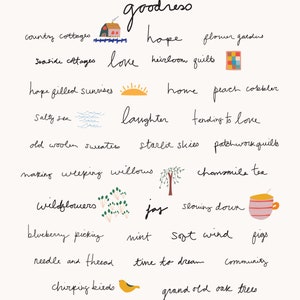 goodness
country cottages hope flower gardens
seaside cottages love heirloom quilts
hope filled sunrises home peach cobbler
salty sea laughter tending to love
old woolen sweaters starlit skies patchwork quilts
making weeping willows chamomile tea
wildflowers joy slowing down
blueberry picking mint soft wind figs
needle and thread time to dream community
chirping birds grand old oak trees